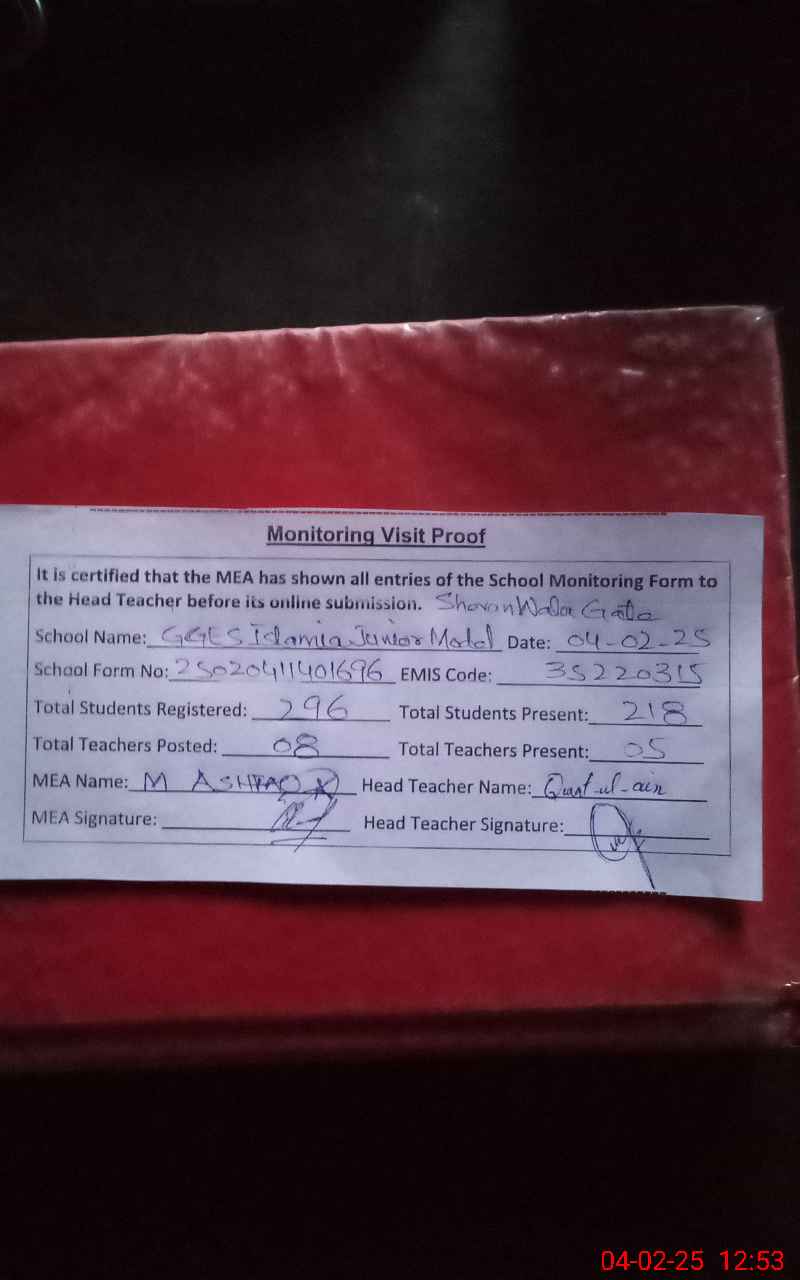 Monitoring Visit Proof
It is certified that the MEA has shown all entries of the School Monitoring Form to
the Head Teacher before its online submission. Sheran Wala Gate
School Name: GGES Islamia Junior Model Date: 04-02-25
School Form No: 25020411401696 EMIS Code: 35220315
Total Students Registered: 296 Total Students Present: 218
Total Teachers Posted: 08 Total Teachers Present: 05
MEA Name: M ASHFAQ Head Teacher Name: Qurat-ul-ain
MEA Signature: Head Teacher Signature:
04-02-25 12:53